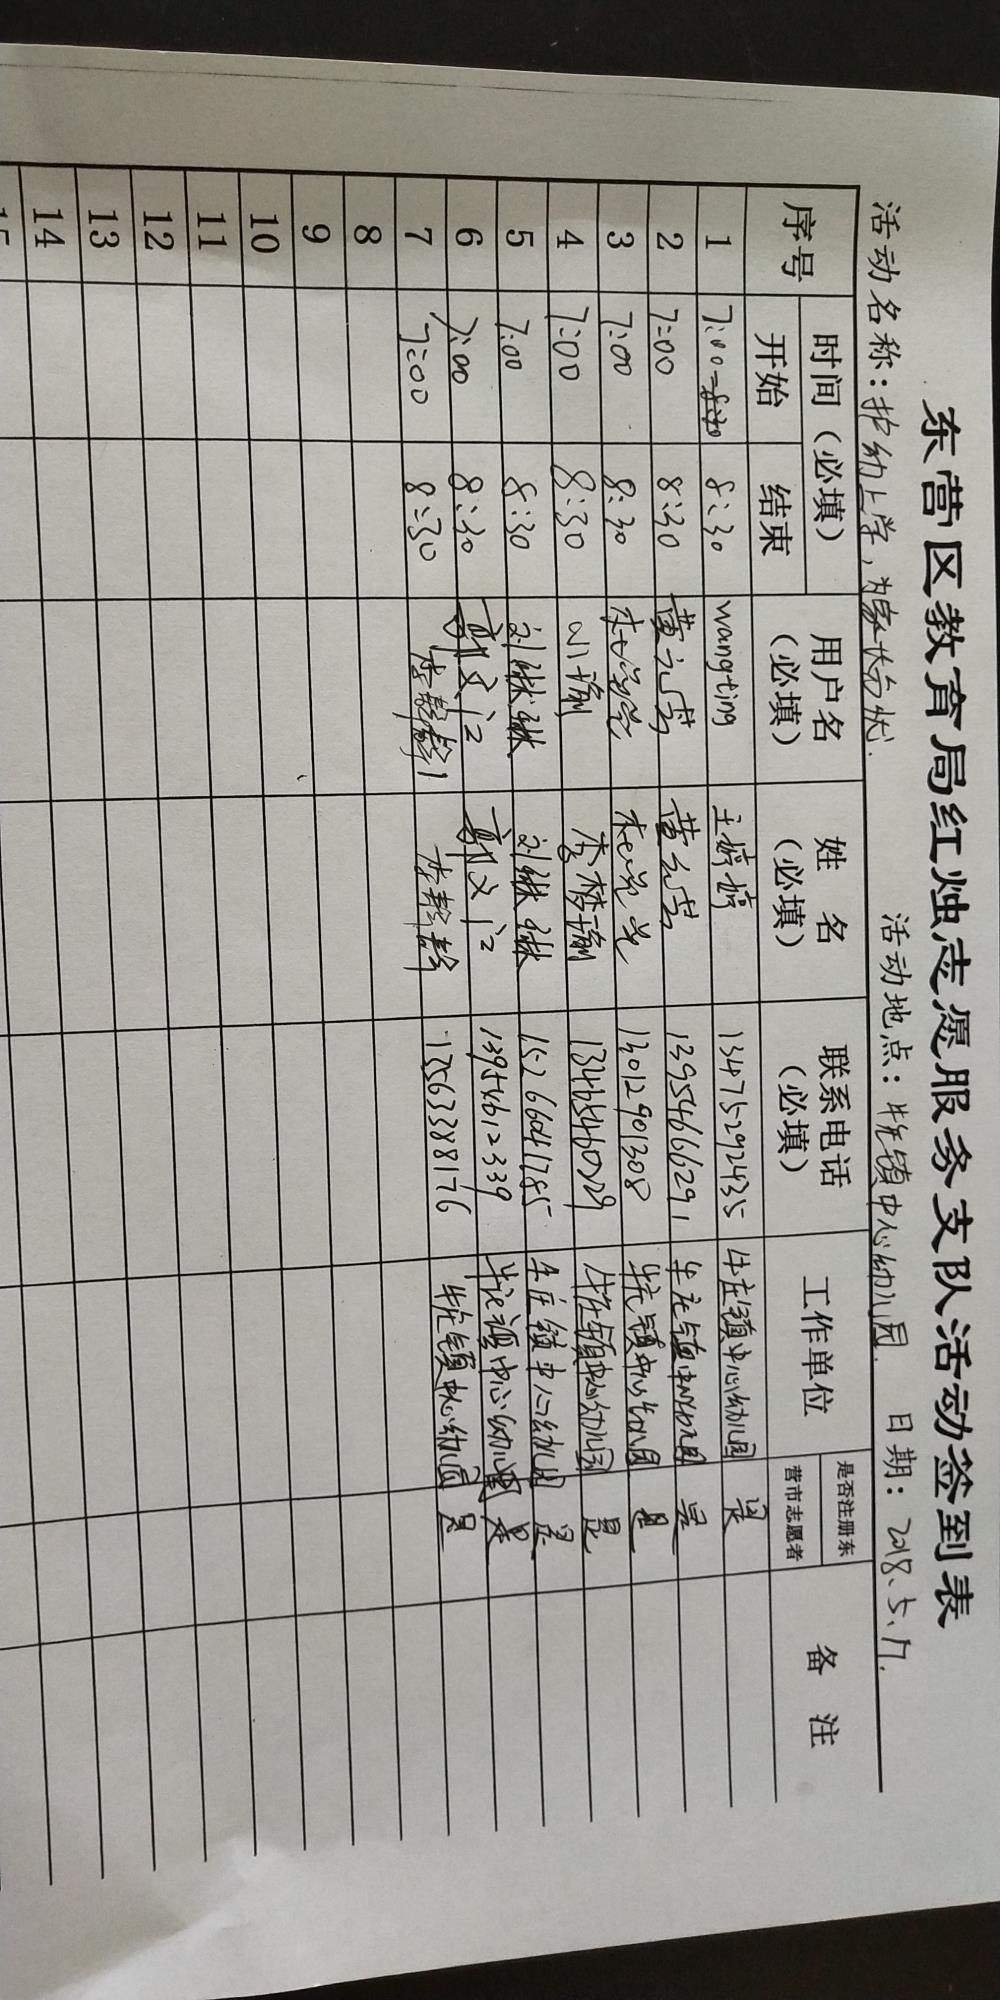 东营区教育局红烛志愿服务支队活动签到表
活动名称：护幼上学，为家长分忧. 活动地点：牛庄镇中心幼儿园. 日期：2018.5.17.
序号 时间（必填） 用户名（必填） 姓名（必填） 联系电话（必填） 工作单位 是否注册东营市志愿者 备注
开始 结束
1 7:00 8:30 wangting 王婷婷 13475292435 牛庄镇中心幼儿园 是
2 7:00 8:30 黄 13954666291 牛庄镇中心幼儿园 是
3 7:00 8:30 13012901308 牛庄镇中心幼儿园 是
4 7:00 8:30 小瑜 李梦瑜 13465460029 牛庄镇中心幼儿园 是
5 7:00 8:30 刘琳琳 刘琳琳 15266041785 牛庄镇中心幼儿园 是
6 7:00 8:30 郭文江 郭文江 13954612339 牛庄镇中心幼儿园 是
7 7:00 8:30 李静静1 李静静 1563388176 牛庄镇中心幼儿园 是
8
9
10
11
12
13
14
15